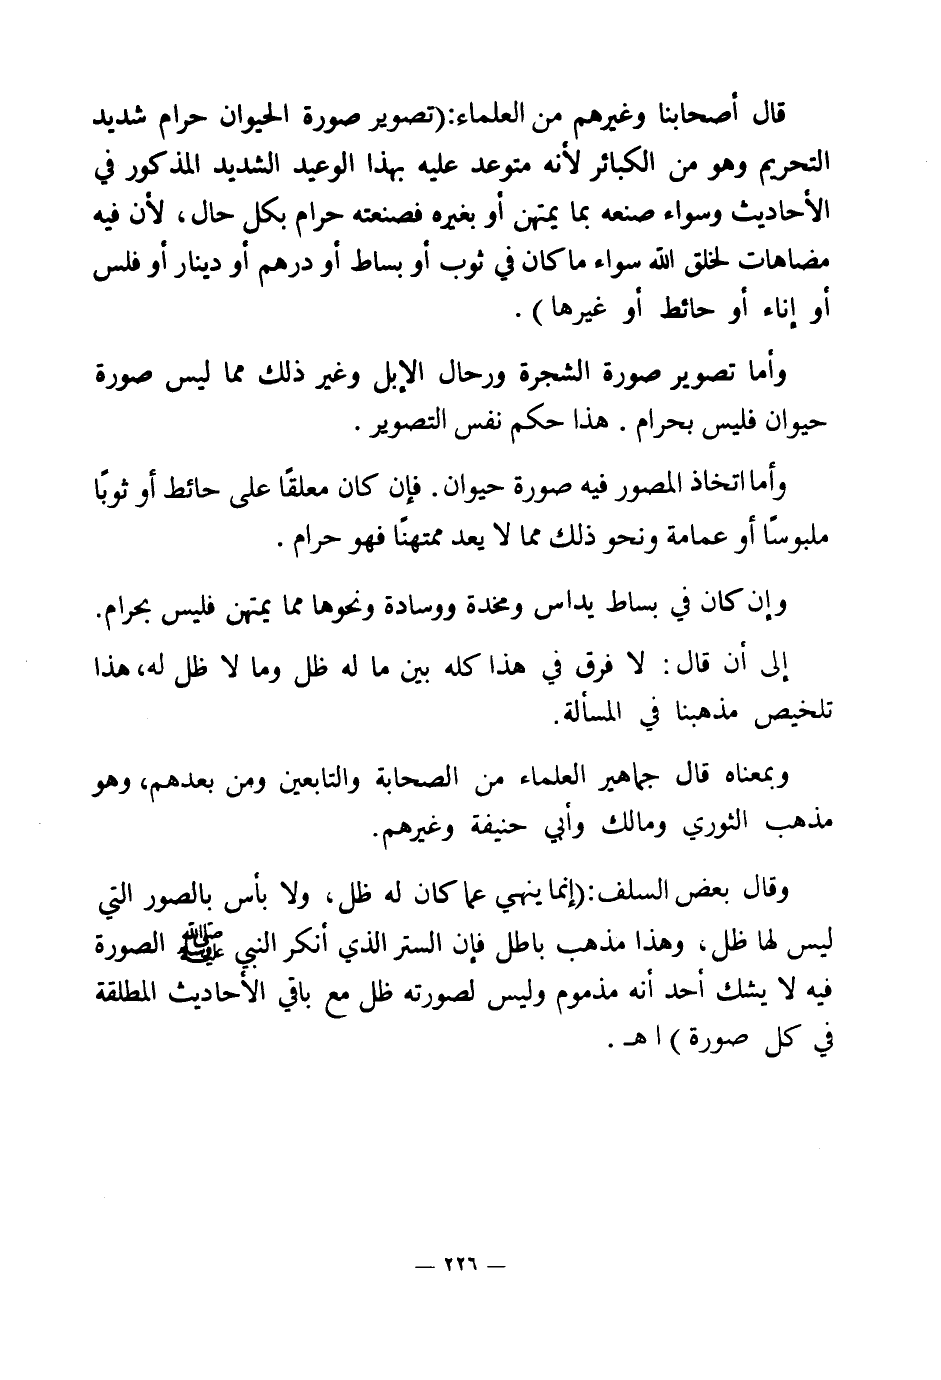 قال أصحابنا وغيرهم من العلماء:(تصوير صورة الحيوان حرام شديد
التحريم وهو من الكبائر لأنه متوعد عليه بهذا الوعيد الشديد المذكور في
الأحاديث وسواء صنعه بما يمتهن أو بغيره فصنعته حرام بكل حال، لأن فيه
مضاهات لخلق الله سواء ما كان في ثوب أو بساط أو درهم أو دينار أو فلس
أو إناء أو حائط أو غيرها) .
وأما تصوير صورة الشجرة ورحال الإبل وغير ذلك مما ليس صورة
حيوان فليس بحرام . هذا حكم نفس التصوير .
وأما اتخاذ المصور فيه صورة حيوان. فإن كان معلقًا على حائط أو ثوبًا
ملبوسًا أو عمامة ونحو ذلك مما لا يعد ممتهنًا فهو حرام .
وإن كان في بساط يداس ومخدة ووسادة ونحوها مما يمتهن فليس بحرام.
إلى أن قال: لا فرق في هذا كله بين ما له ظل وما لا ظل له، هذا
تلخيص مذهبنا في المسألة.
وبمعناه قال جماهير العلماء من الصحابة والتابعين ومن بعدهم، وهو
مذهب الثوري ومالك وأبي حنيفة وغيرهم.
وقال بعض السلف:(إنما ينهي عما كان له ظل، ولا بأس بالصور التي
ليس لها ظل، وهذا مذهب باطل فإن الستر الذي أنكر النبي ﷺ الصورة
فيه لا يشك أحد أنه مذموم وليس لصورته ظل مع باقي الأحاديث المطلقة
في كل صورة) ا هـ .
— ٢٢٦ —